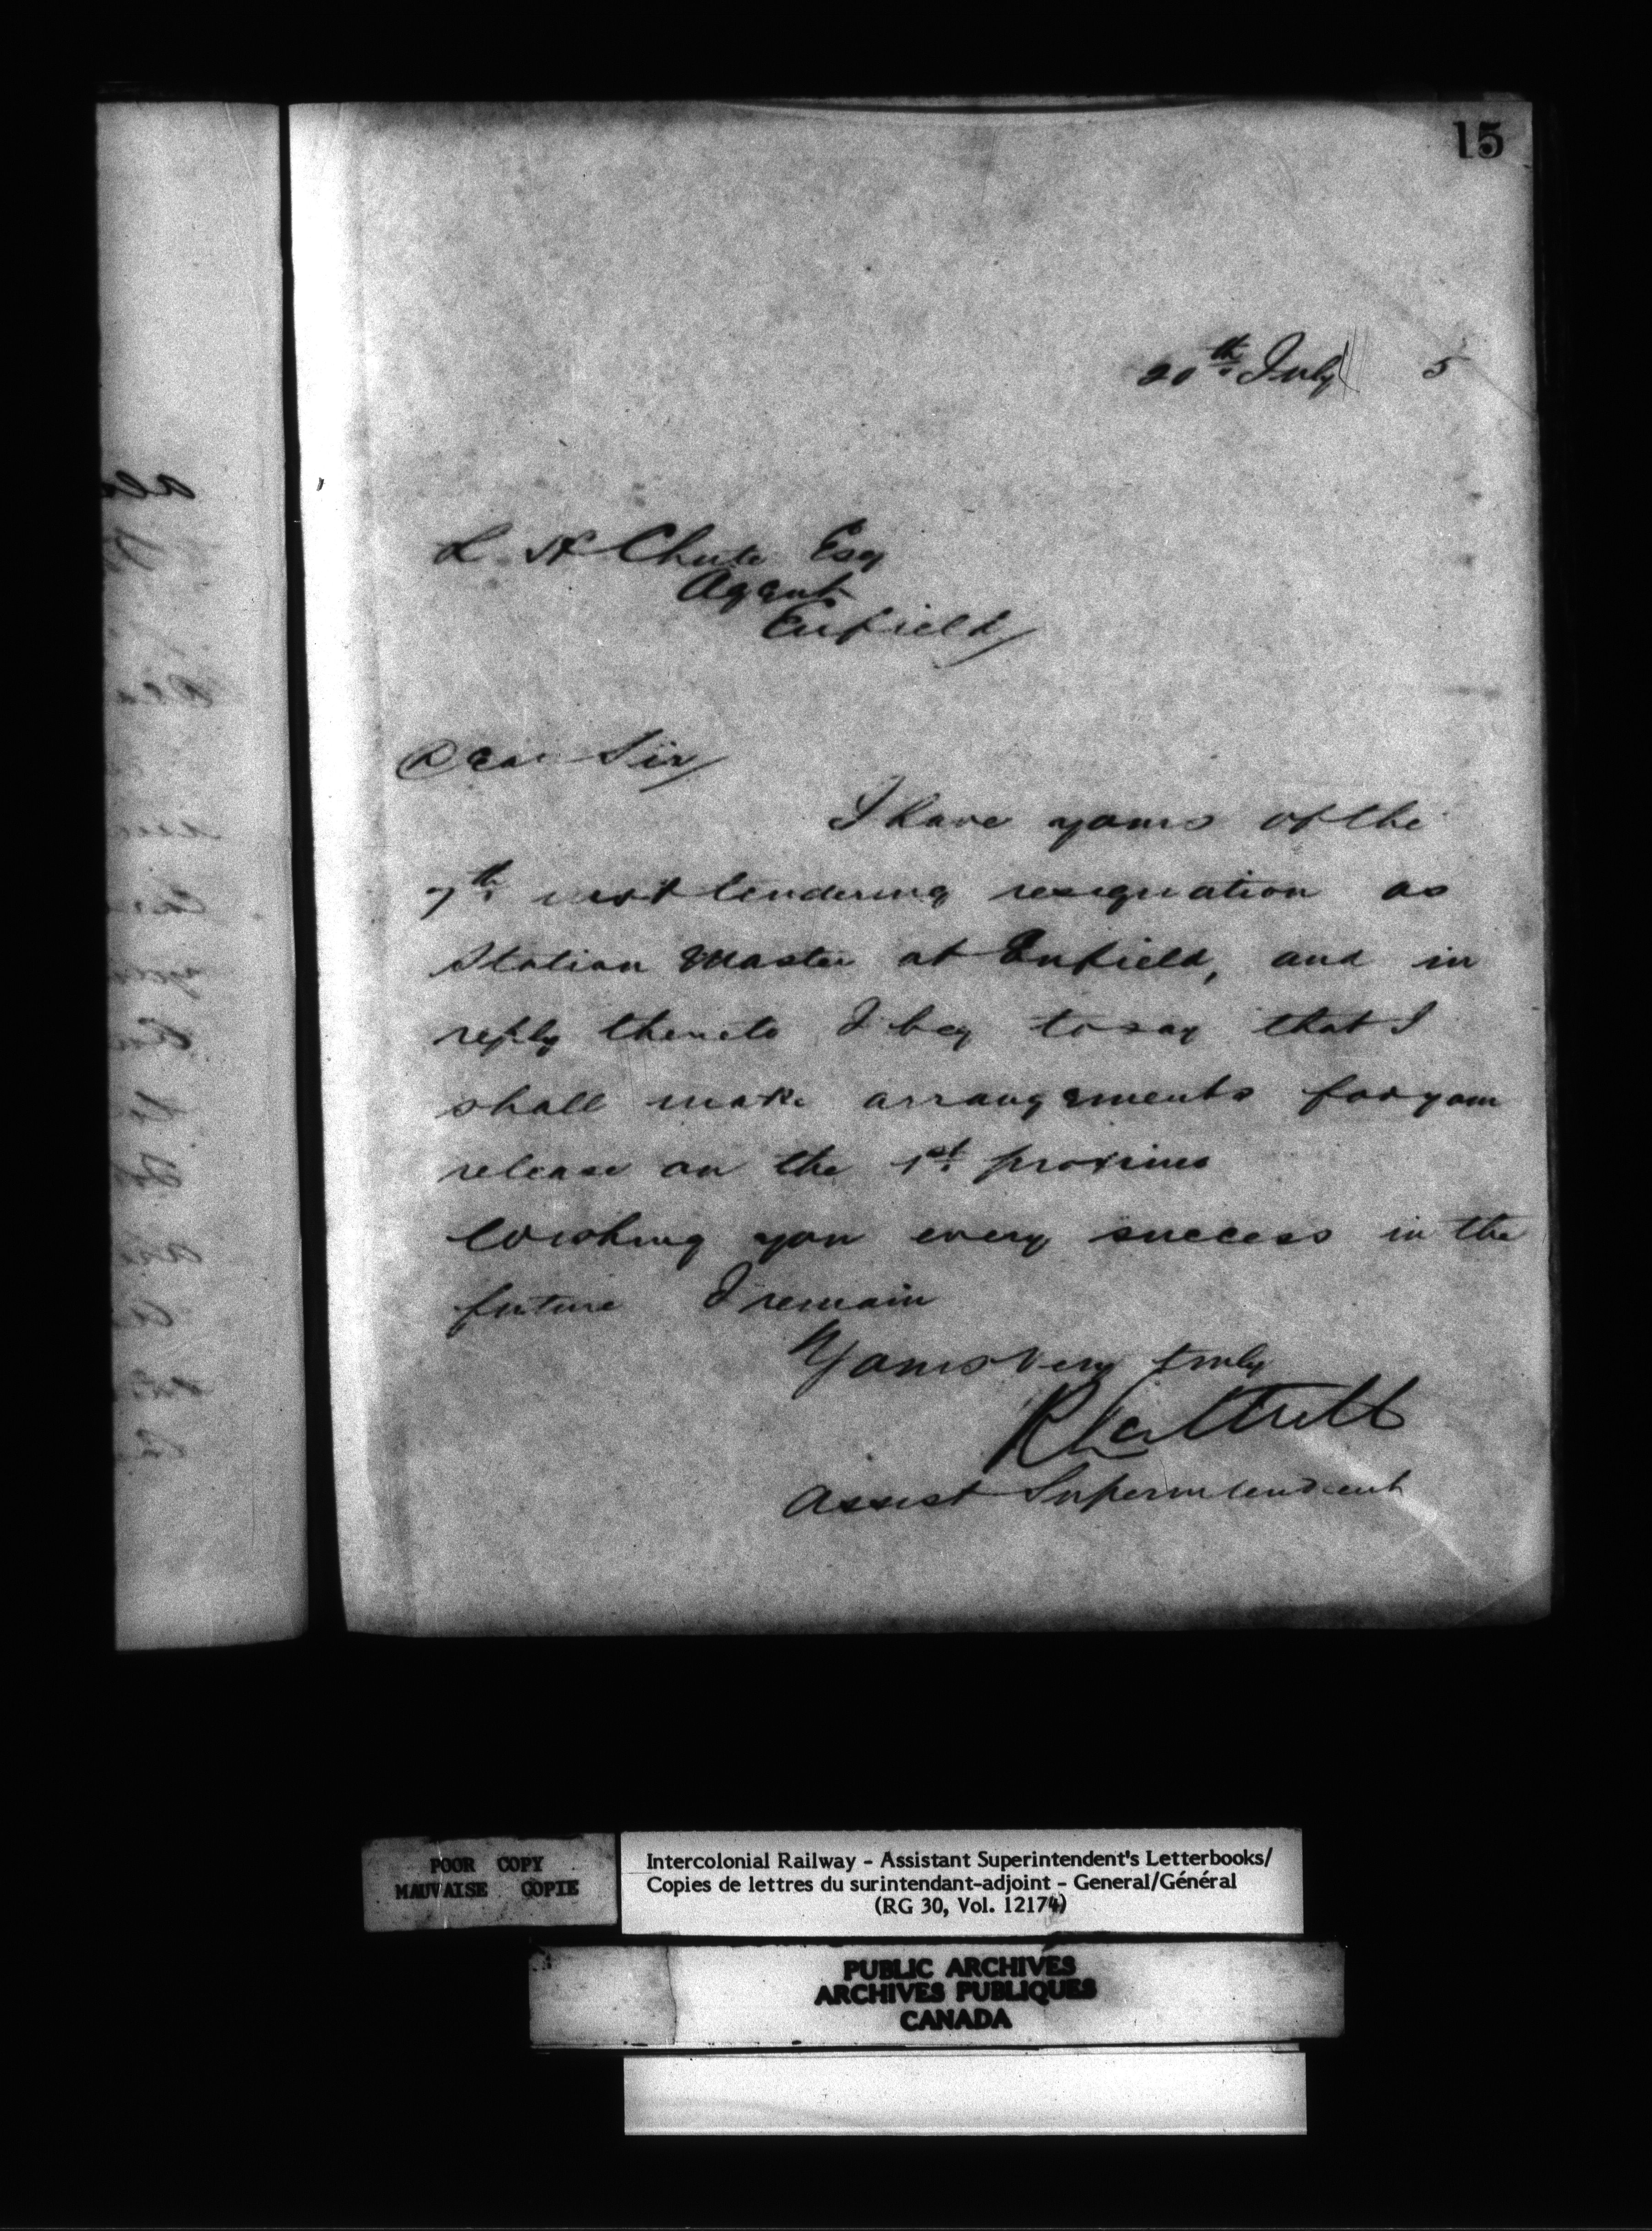 15
20th July 5
L H Chute Esq
Agent
Enfield
Dear Sir
I have yours of the
7th inst tendering resignation as
Station Master at Enfield, and in
reply thereto I beg to say that I
shall make arrangements for your
release on the 1st proximo
Wishing you every success in the
future I remain
Yours very truly
Assist Superintendent
POOR COPY
MAUVAISE COPIE
Intercolonial Railway - Assistant Superintendent's Letterbooks/
Copies de lettres du surintendant-adjoint - General/Général
(RG 30, Vol. 12174)
PUBLIC ARCHIVES
ARCHIVES PUBLIQUES
CANADA